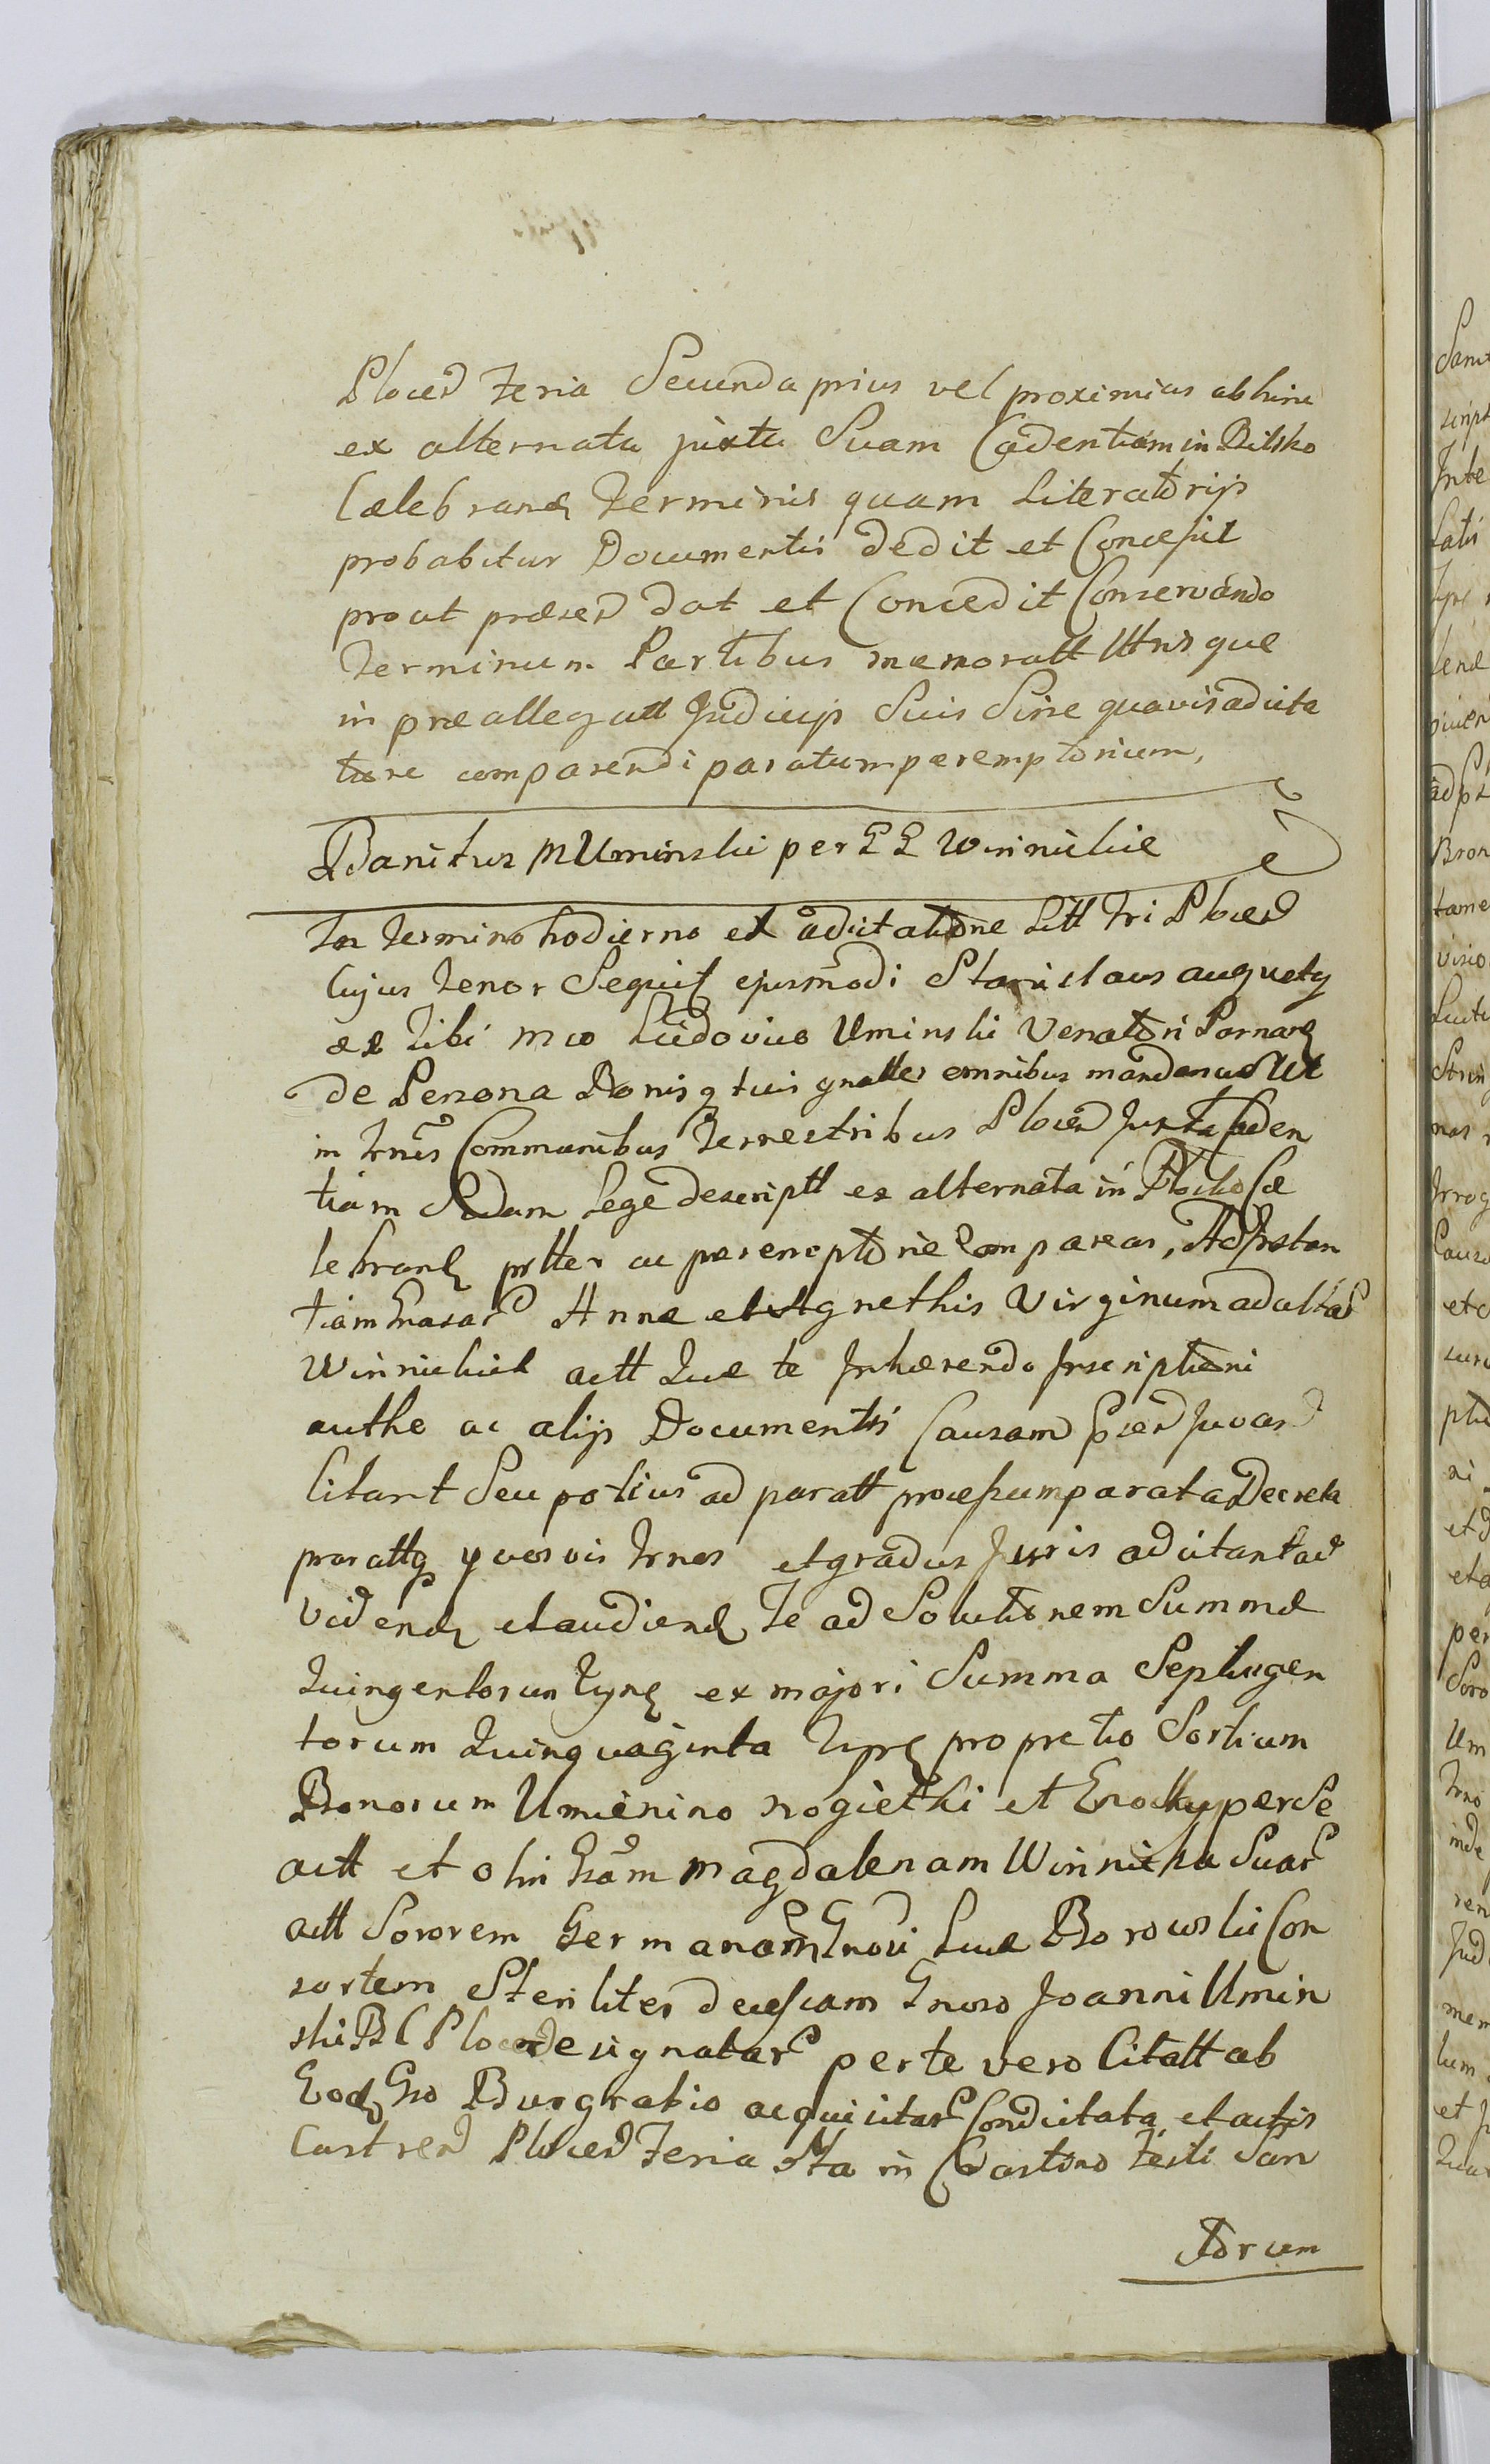 Plocen Feria Secunda prius vel proximius abhinc
ex alternata juxta Suam Cadentiam in Bilsko
Caeleb rand Terminis quam Literatorijs
probabitur Documentis dedit et Concessit
prout praesen dat et Concedit Conservando
Terminum Partibus memoratt Utrisque
in praeallegatt Judicijs Suis Sine quavis adcita
tione comparendi paratum peremptorium,
Banitus M Uminski per GG Winnickie
In Termino hodierno ex adcitatione Litt Tri Plocen
Cujus Tenor Sequit ejusmodi Stanislaus augusty
Tibi Mco Ludovico Uminski Venatori Parnan
de Persona Bonisq tuis gnalle omnibus mandamus Ut
in Trnis Communibus Terrestribus Plocen Juxta Caden
tiam Sedam Lege descriptt ex alternata in Plocko Cae
lebrand pltter ac peremptorie Compareas, Ad Instan
tiam Gnarar Annae et Agnethis Virginum adultar
Winnickich actt Quae te Inhaerendo Inscriptioni
authe ac alijs Documentis Causam Juvan
Citant Seu potius ad paratt processum parata Decreta
paratq quosvis Trnos et gradus Juris adcitant ad
Vidend et audiend Te ad Solutionem Summae
Quingentorum Tyn ex majori Summa Septingen
torum Quinquaginta Typn pro pretio Sortium
Bonorum Umienino nogiethi et per Se
actt et olim Gnam Magdalenam Winnicka Suar
actt Sororem Germanam Gnosi Borowski Con
sortem Steriliter decessam Gnoso Joanni Umin
ski B C Plocen designatar per te vero Citatt ab
Eod Gso Burgrabio acquisitar Condictata et actis
Castren Plocen Feria in Crastino Festi San
ctorum